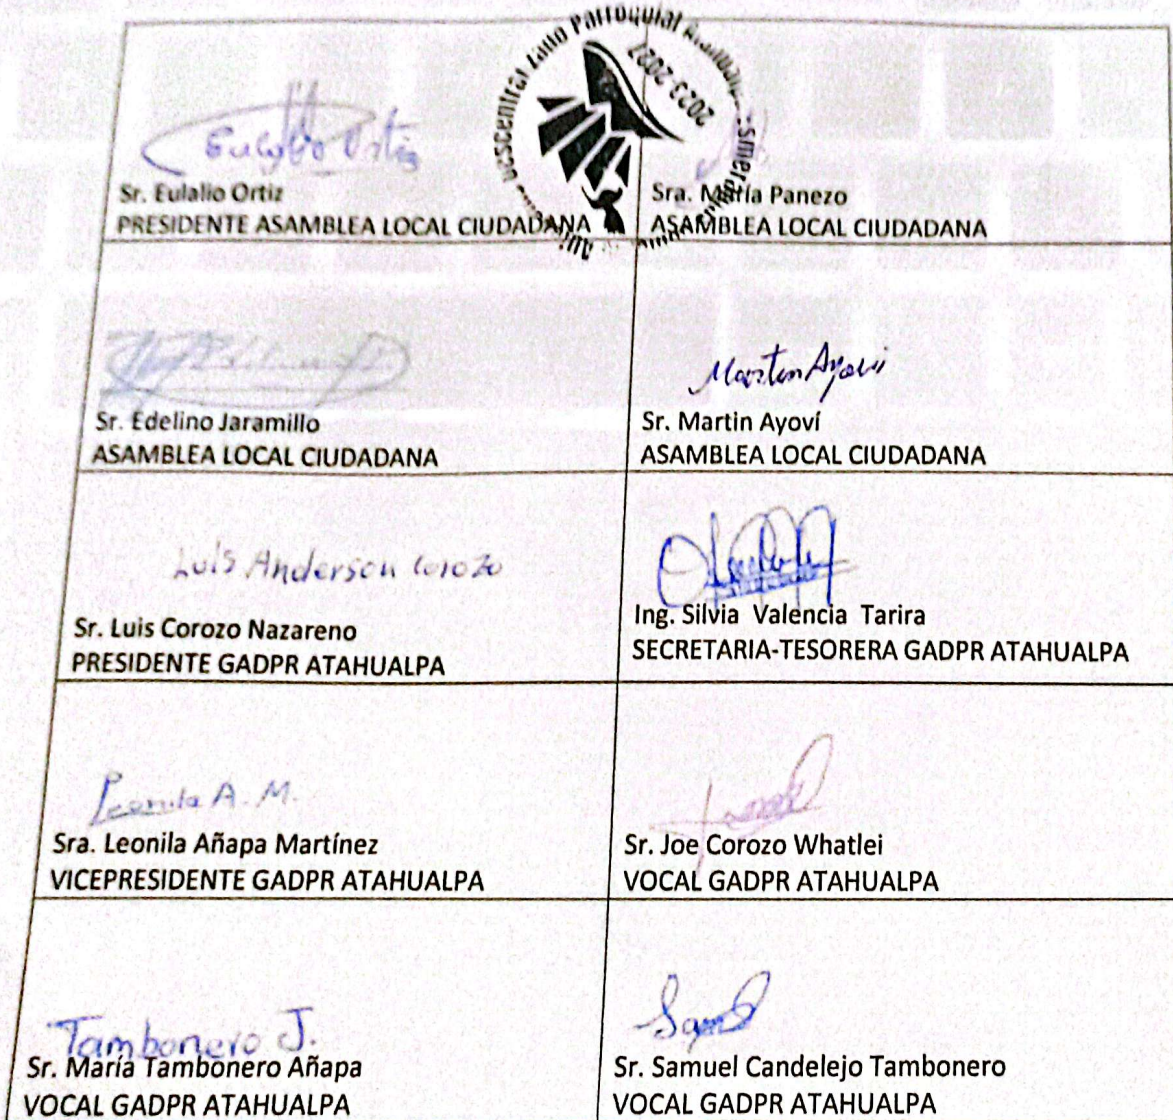 Parroquial
2023-2027
Eulalio Ortiz
Sr. Eulalio Ortiz
PRESIDENTE ASAMBLEA LOCAL CIUDADANA
Sra. María Panezo
ASAMBLEA LOCAL CIUDADANA
Sr. Edelino Jaramillo
ASAMBLEA LOCAL CIUDADANA
Martin Ayovi
Sr. Martin Ayoví
ASAMBLEA LOCAL CIUDADANA
Luis Anderson Corozo
Sr. Luis Corozo Nazareno
PRESIDENTE GADPR ATAHUALPA
Ing. Silvia Valencia Tarira
SECRETARIA-TESORERA GADPR ATAHUALPA
Leonila A. M.
Sra. Leonila Añapa Martínez
VICEPRESIDENTE GADPR ATAHUALPA
Sr. Joe Corozo Whatlei
VOCAL GADPR ATAHUALPA
Tambonero J.
Sr. María Tambonero Añapa
VOCAL GADPR ATAHUALPA
Sr. Samuel Candelejo Tambonero
VOCAL GADPR ATAHUALPA